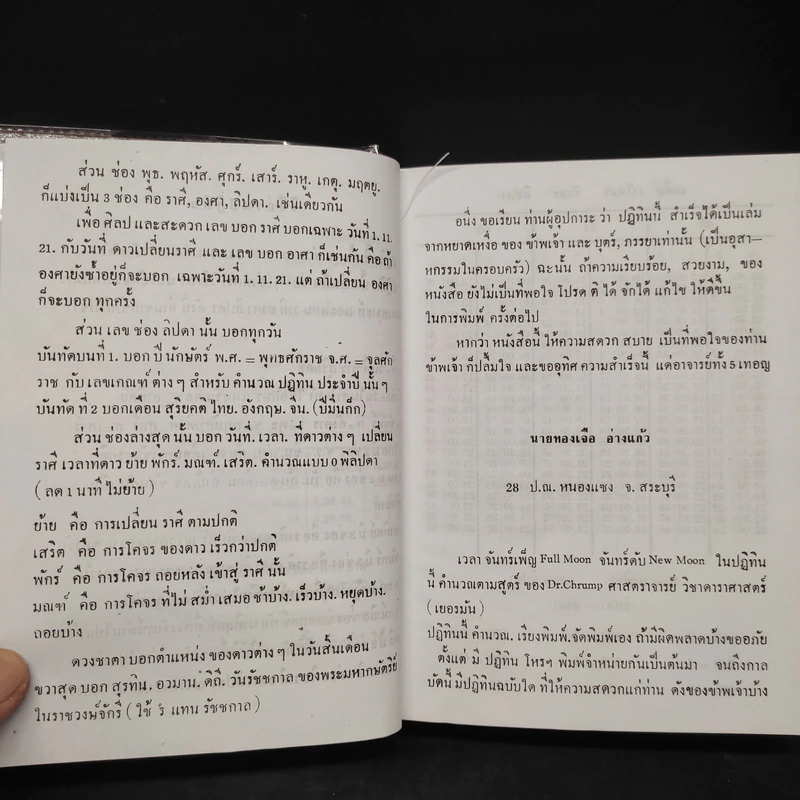 ส่วน ช่อง พุธ. พฤหัส. ศุกร์. เสาร์. ราหู. เกตุ. มฤตยู.
ก็แบ่งเป็น 3 ช่อง คือ ราศี, องศา, ลิปดา. เช่นเดียวกัน
เพื่อ ศิลป และสะดวก เลข บอก ราศี บอกเฉพาะ วันที่ 1. 11.
21. กับวันที่ ดาวเปลี่ยนราศี และ เลข บอก อาศา ก็เช่นกัน คือ ถ้า
องศายังซ้ำอยู่ก็จะบอก เฉพาะวันที่ 1. 11. 21. แต่ ถ้าเปลี่ยน องศา
ก็จะบอก ทุกครั้ง
ส่วน เลข ช่อง ลิปดา นั้น บอกทุกวัน
บันทัดบนที่ 1. บอก ปี นักษัตร์ พ.ศ. = พุทธศักราช จ.ศ. = จุลศัก
ราช กับ เลขเกณฑ์ ต่าง ๆ สำหรับ คำนวณ ปฏิทิน ประจำปี นั้น ๆ
บันทัด ที่ 2 บอกเดือน สุริยคติ ไทย. อังกฤษ. จีน. (ปีมินก๊ก)
ส่วน ช่องล่างสุด นั้น บอก วันที่. เวลา. ที่ดาวต่าง ๆ เปลี่ยน
ราศี เวลาที่ดาว ย้าย พักร์. มณฑ์. เสริต. คำนวณแบบ 0 พิลิปดา
( ลด 1 นาที ไม่ย้าย )
ย้าย คือ การเปลี่ยน ราศี ตามปกติ
เสริต คือ การโคจร ของดาว เร็วกว่าปกติ
พักร์ คือ การโคจร ถอยหลัง เข้าสู่ ราศี นั้น
มณฑ์ คือ การโคจร ที่ไม่ สม่ำ เสมอ ช้าบ้าง. เร็วบ้าง. หยุดบ้าง.
ถอยบ้าง
ดวงชาตา บอกตำแหน่ง ของดาวต่าง ๆ ในวันสิ้นเดือน
ขวาสุด บอก สุรทิน. อวมาน. ดิถี. วันรัชชกาล ของพระมหากษัตริย์
ในราชวงษ์จักรี ( ใช้ ร แทน รัชชกาล )
อนึ่ง ขอเรียน ท่านผู้อุปการะ ว่า ปฏิทินนี้ สำเร็จได้เป็นเล่ม
จากหยาดเหงื่อ ของ ข้าพเจ้า และ บุตร์, ภรรยาเท่านั้น (เป็นอุสา—
หกรรมในครอบครัว) ฉะนั้น ถ้าความเรียบร้อย, สวยงาม, ของ
หนังสือ ยังไม่เป็นที่พอใจ โปรด ติ ได้ จักได้ แก้ไข ให้ดีขึ้น
ในการพิมพ์ ครั้งต่อไป
หากว่า หนังสือนี้ ให้ความสดวก สบาย เป็นที่พอใจของท่าน
ข้าพเจ้า ก็ปลื้มใจ และขออุทิศ ความสำเร็จนี้ แด่อาจารย์ทั้ง 5 เทอญ
นายทองเจือ อ่างแก้ว
28 ป.ณ. หนองแซง จ. สระบุรี
เวลา จันทร์เพ็ญ Full Moon จันทร์ดับ New Moon ในปฏิทิน
นี้ คำนวณตามสูตร์ ของ Dr.Chrump ศาสตราจารย์ วิชาดาราศาสตร์
(เยอรมัน)
ปฏิทินนี้ คำนวณ. เรียงพิมพ์.จัดพิมพ์เอง ถ้ามีผิดพลาดบ้างขออภัย
ตั้งแต่ มี ปฏิทิน โหรฯ พิมพ์จำหน่ายกันเป็นต้นมา จนถึงกาล
บัดนี้ มีปฏิทินฉบับใด ที่ให้ความสดวกแก่ท่าน ดังของข้าพเจ้าบ้าง